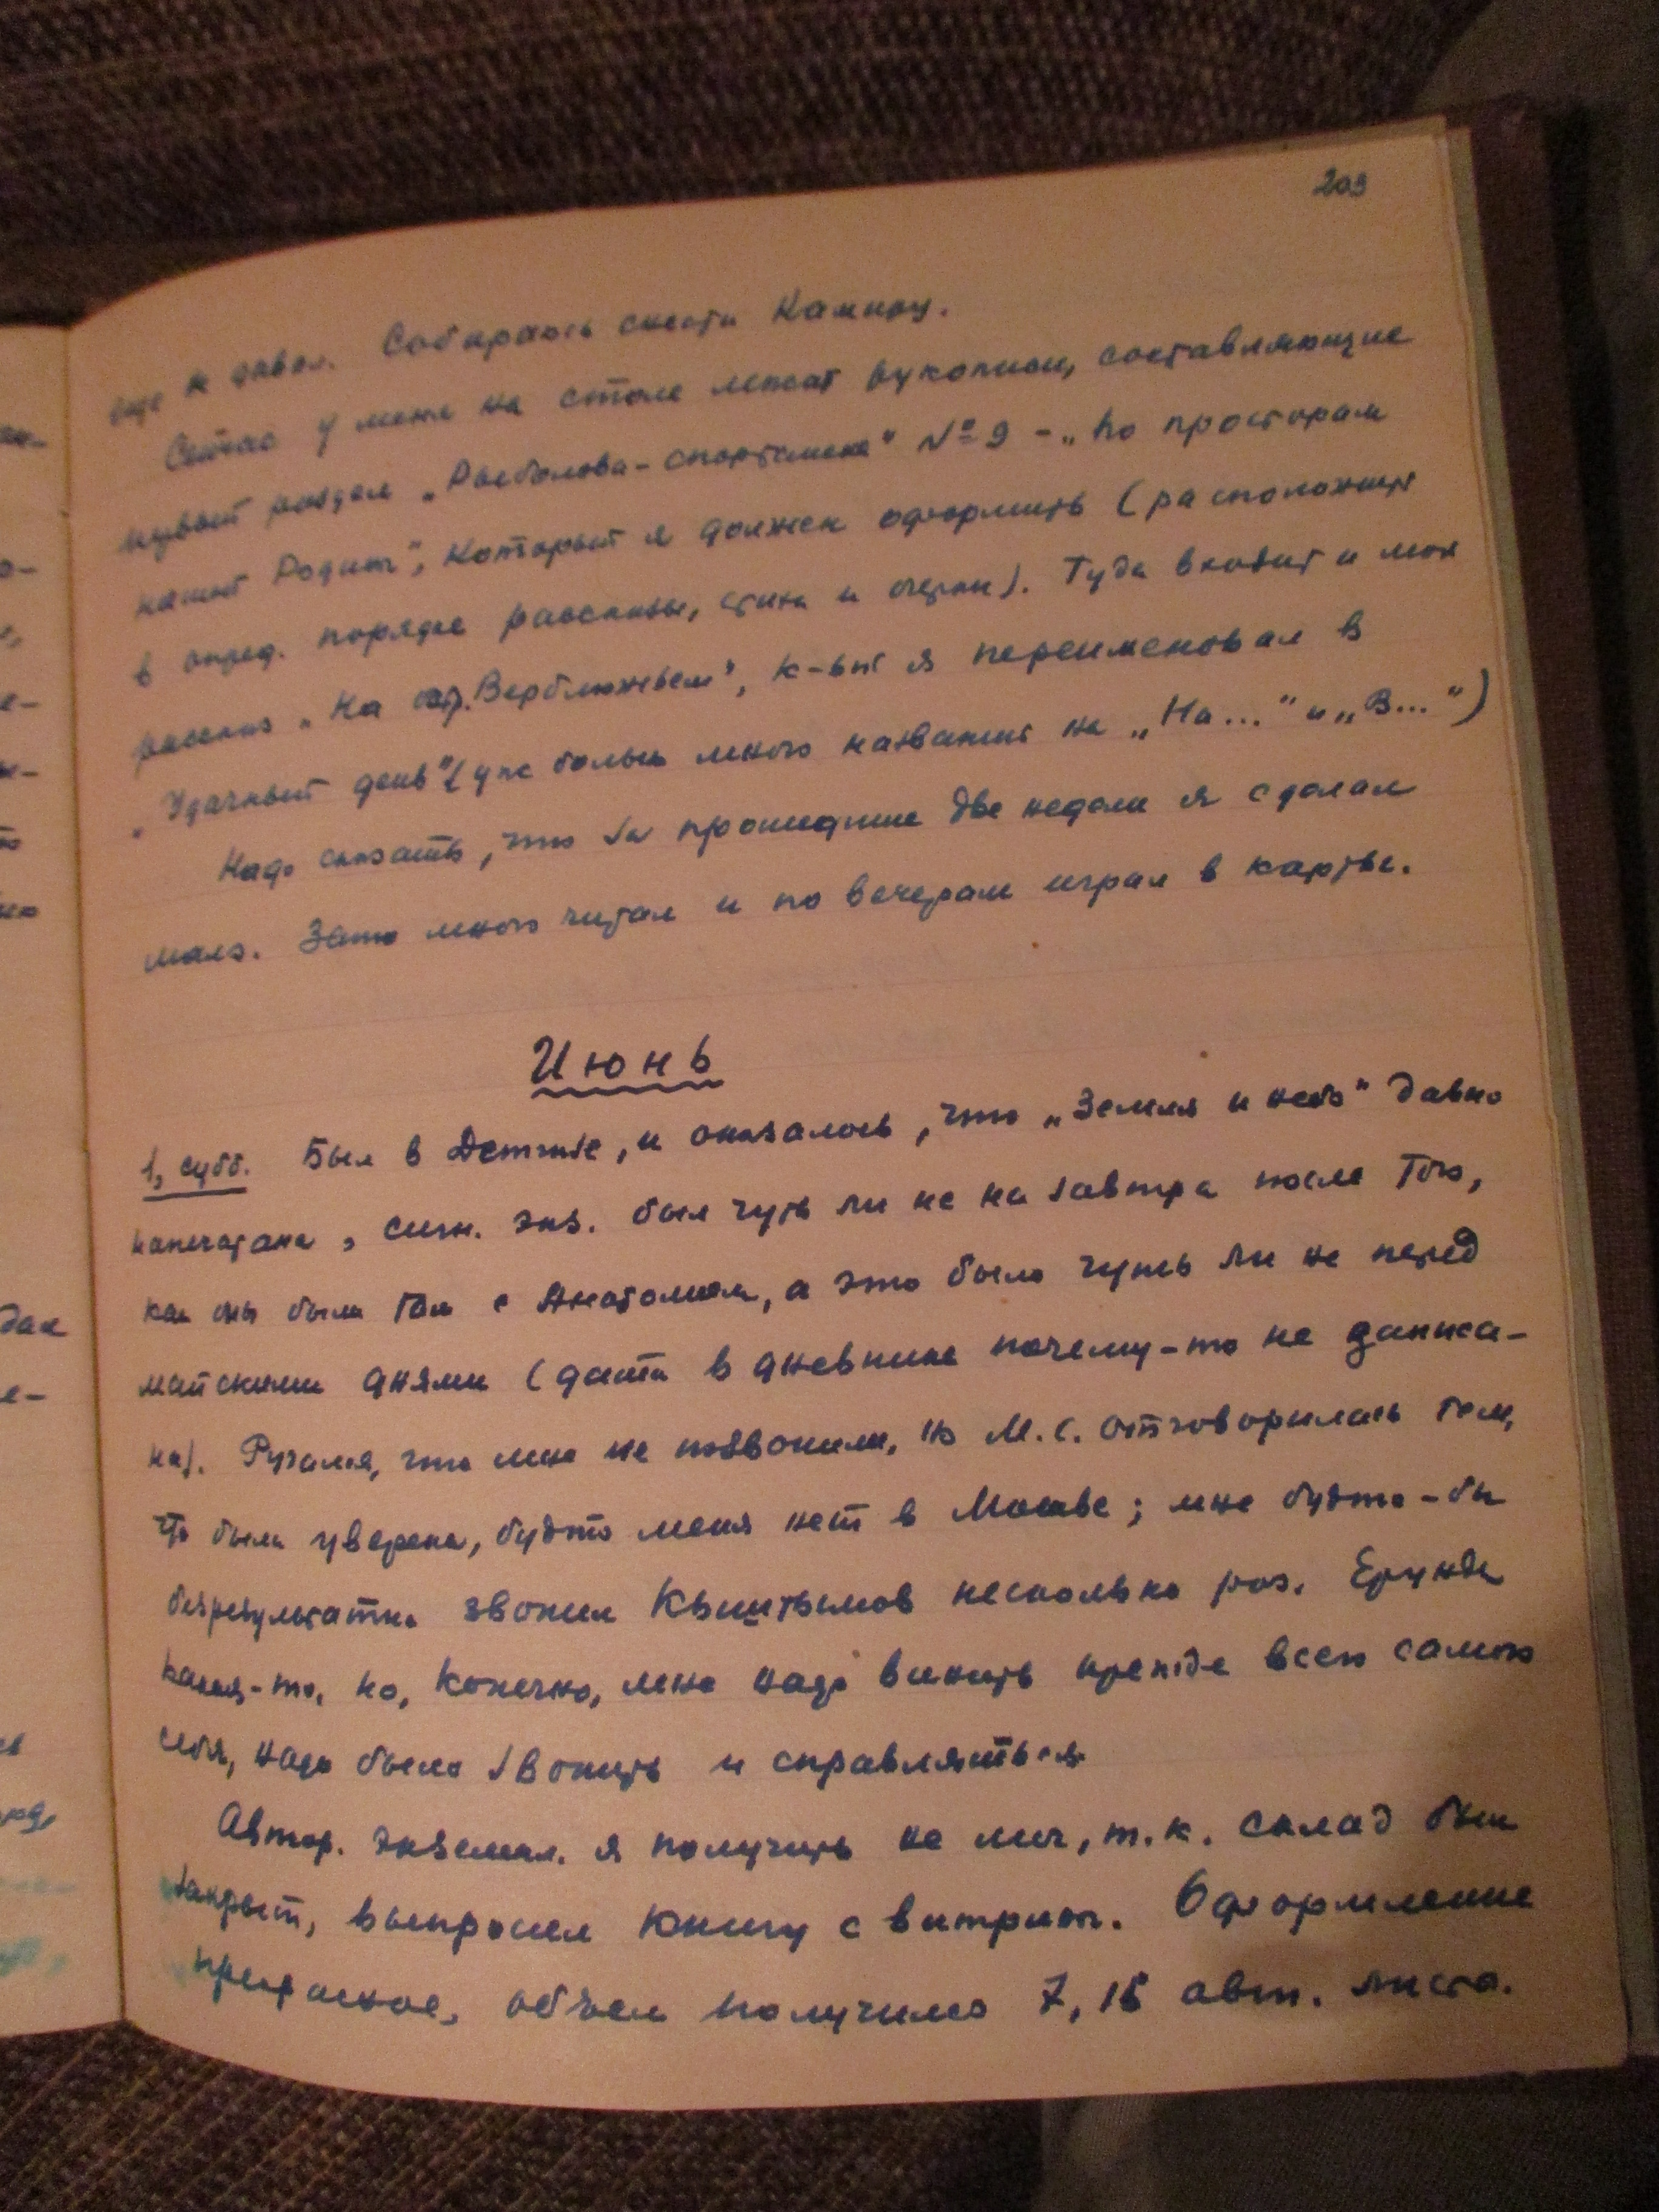 203
еще к довол. Собираюсь снести Камиру.
Сейчас у меня на столе лежат рукописи, составляющие
первый раздел „Рыболова-спортсмена" № 9 - „По просторам
нашей Родины", который я должен оформить (расположить
в опред. порядке рассказы, стихи и очерки). Туда входит и мой
рассказ „На оз. Верблюжьем", к-рый я переименовал в
„Удачный день" (уже больно много названий на „На..." и „В...")
Надо сказать, что за прошедшие две недели я сделал
мало. Зато много читал и по вечерам играл в карты.
Июнь
1, субб. Был в Детгизе, и оказалось, что „Земля и небо" давно
напечатана, сигн. экз. был чуть ли не на завтра после того,
как мы были там с Анатолием, а это было чуть ли не перед
майскими днями (дата в дневнике почему-то не записа-
на). Ругался, что мне не позвонили, но М.С. отговорилась тем,
что была уверена, будто меня нет в Москве; мне будто-бы
безрезультатно звонил Кыштымов несколько раз. Ерунда
какая-то, но, конечно, мне надо винить прежде всего самого
себя, надо было звонить и справляться.
Автор. экземпл. я получить не мог, т.к. склад был
закрыт, выпросил книгу с витрины. Оформление
прекрасное, объем получился 7,15 авт. листа.
дал